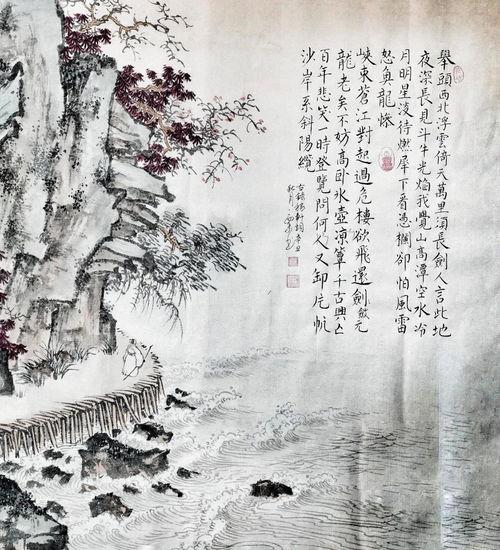 舉頭西北浮雲倚天萬里須長劍人言此地
夜深長見斗牛光焰我覺山高潭空水冷
月明星淡待燃犀下看憑欄卻怕風雷
怒魚龍慘
峽束蒼江對起過危樓欲飛還劍斂元
龍老矣不妨高臥冰壺涼簟千古興亡
百年悲笑一時登覽問何人又卸片帆
沙岸系斜陽纜
古錄稼軒詞辛丑
秋月